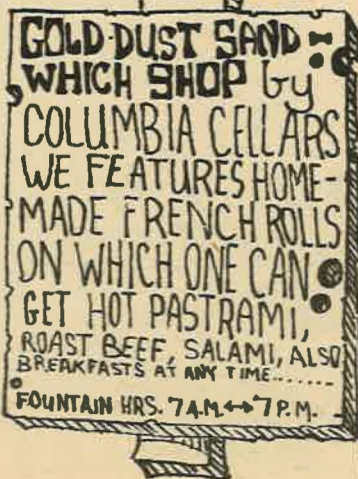 GOLD·DUST SAND-
WHICH SHOP by
COLUMBIA CELLARS
WE FEATURES HOME-
MADE FRENCH ROLLS
ON WHICH ONE CAN
GET HOT PASTRAMI,
ROAST BEEF, SALAMI, ALSO
BREAKFASTS AT ANY TIME.......
FOUNTAIN HRS. 7 A.M.↔7 P.M.